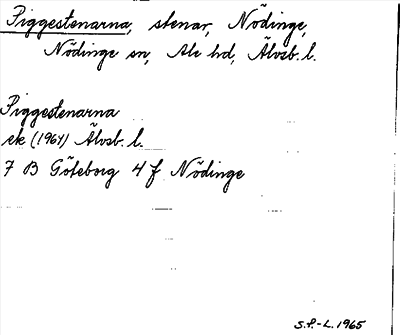 Piggestenarna, stenar, Nödinge,
Nödinge sn, Ale hd, Älvsb. l.
Piggestenarna
ek (1964) Älvsb. l.
7 B Göteborg 4 f Nödinge
S.P.-L. 1965